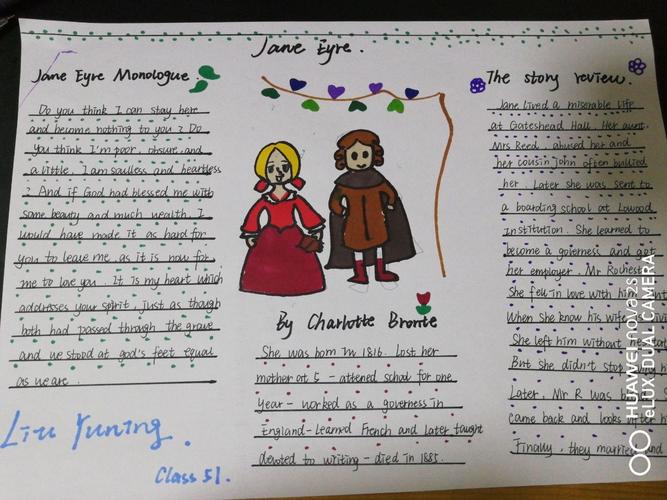 Jane Eyre.
Jane Eyre Monologue.
Do you think I can stay here
and become nothing to you? Do
you think I'm poor, obsure, and
a little, I am soulless and heartless
? And if God had blessed me with
some beauty and much wealth, I
would have made it as hard for
you to leave me, as it is now for
me to love you. It is my heart which
addresses your spirit, just as though
both had passed through the grave
and we stood at god's feet equal
as we are.
Liu Yuning.
Class 51.
By Charlotte Bronte
She was born in 1816. Lost her
mother at 5 - attened school for one
year - worked as a governess in
England - Learned French and later taught
devoted to writing - died in 1885.
The story review.
Jane lived a miserable life
at Gateshead Hall. Her aunt,
Mrs Reed, abused her and
her cousin john often bullied
her. Later she was sent to
a boarding school at Lowood
Institution. She learned to
become a governess and got
her employer, Mr Rochest
She fell in love with him
When she know his wife
She left him without
But she didn't stop
Later, Mr R was
came back and looks
Finally, they married and
HUAWEI nova 2s
DUAL CAMERA